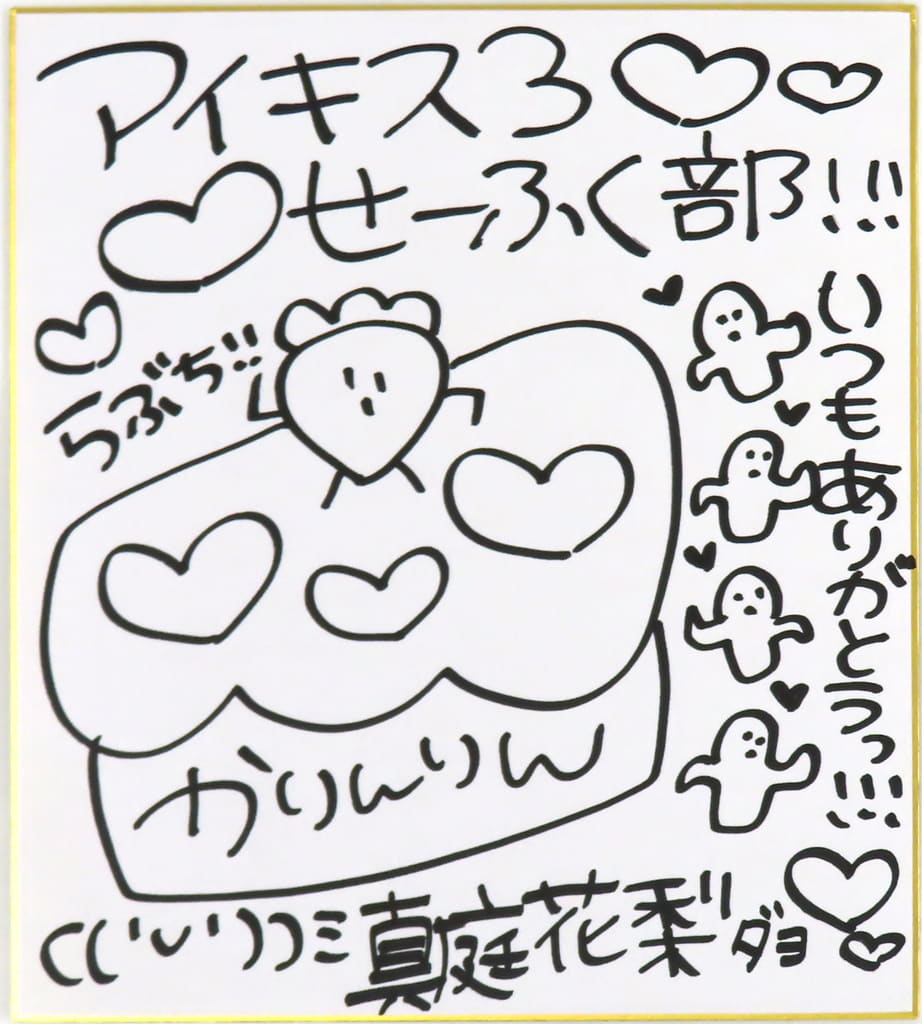 アイキスろ♡♡
♡せーふく部!!!
らぶぢ!!
いつもありがとうっ!!!
かりんりん
((('い')))ミ
真庭花梨ダヨ♡♡